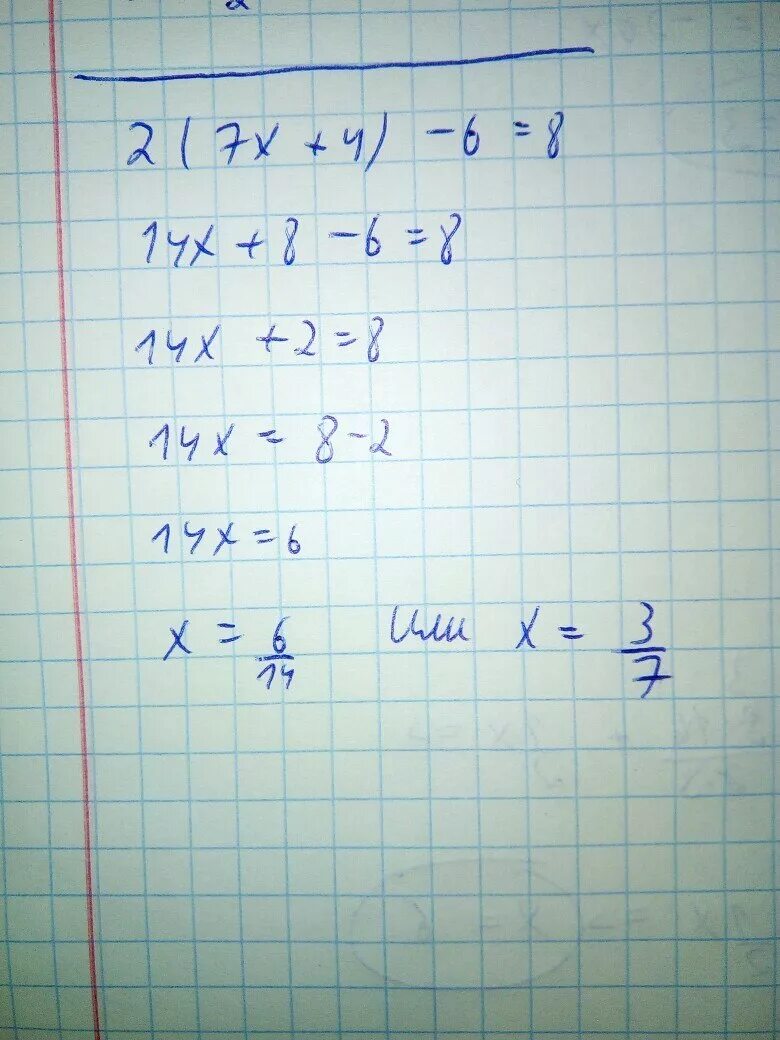 2(7x + 4) - 6 = 8
14x + 8 - 6 = 8
14x + 2 = 8
14x = 8 - 2
14x = 6
x = 6/14 или x = 3/7